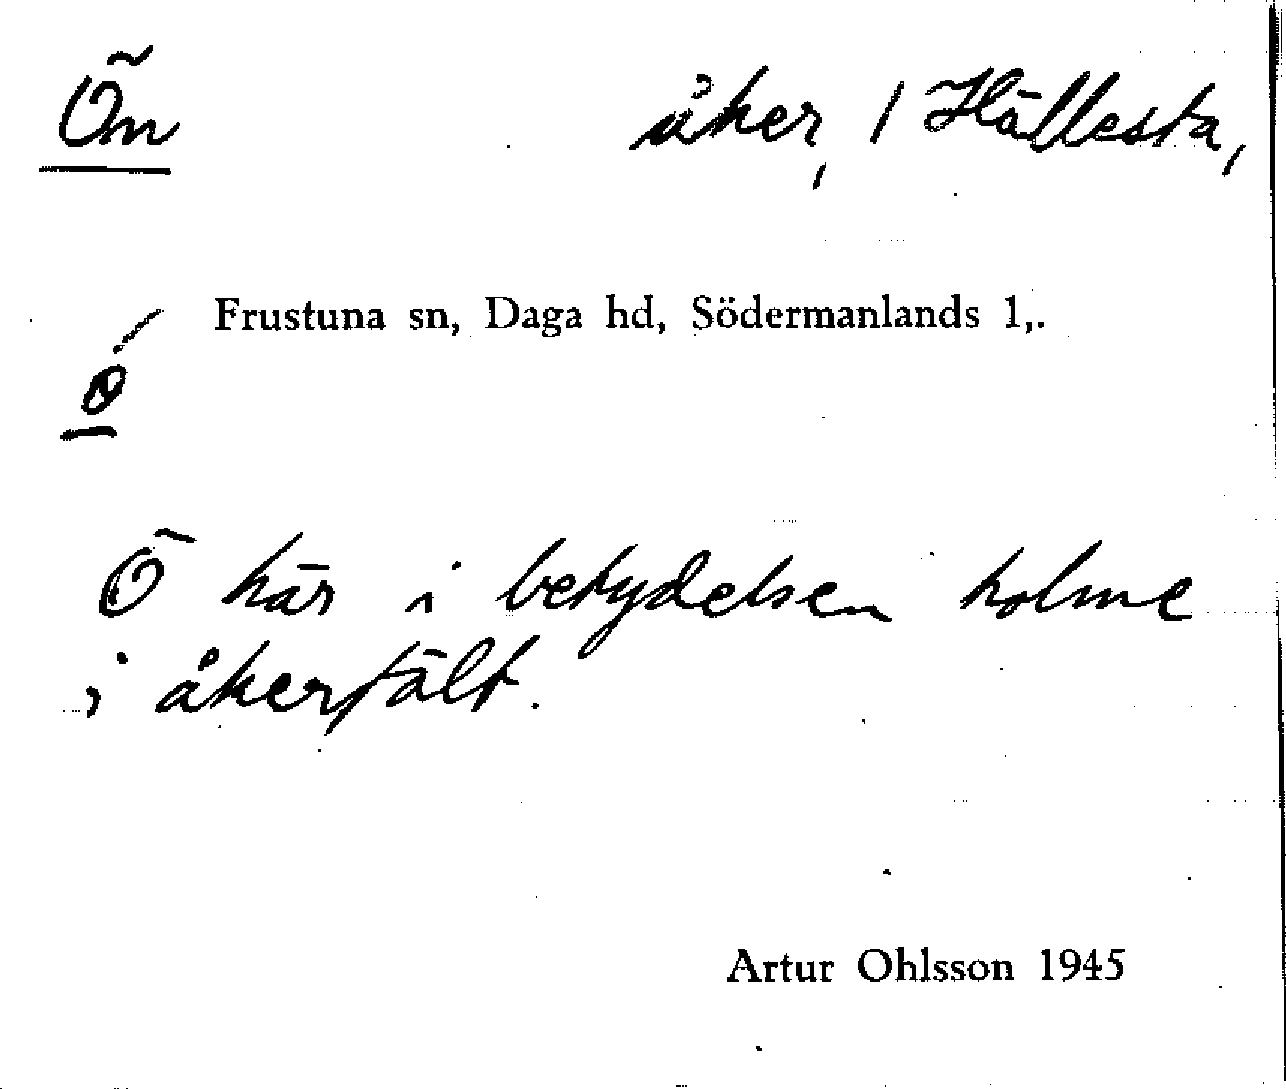 Ön åker, / Hällesta,
Frustuna sn, Daga hd, Södermanlands l,.
ö
Ö här i betydelsen holme
i åkerfält.
Artur Ohlsson 1945